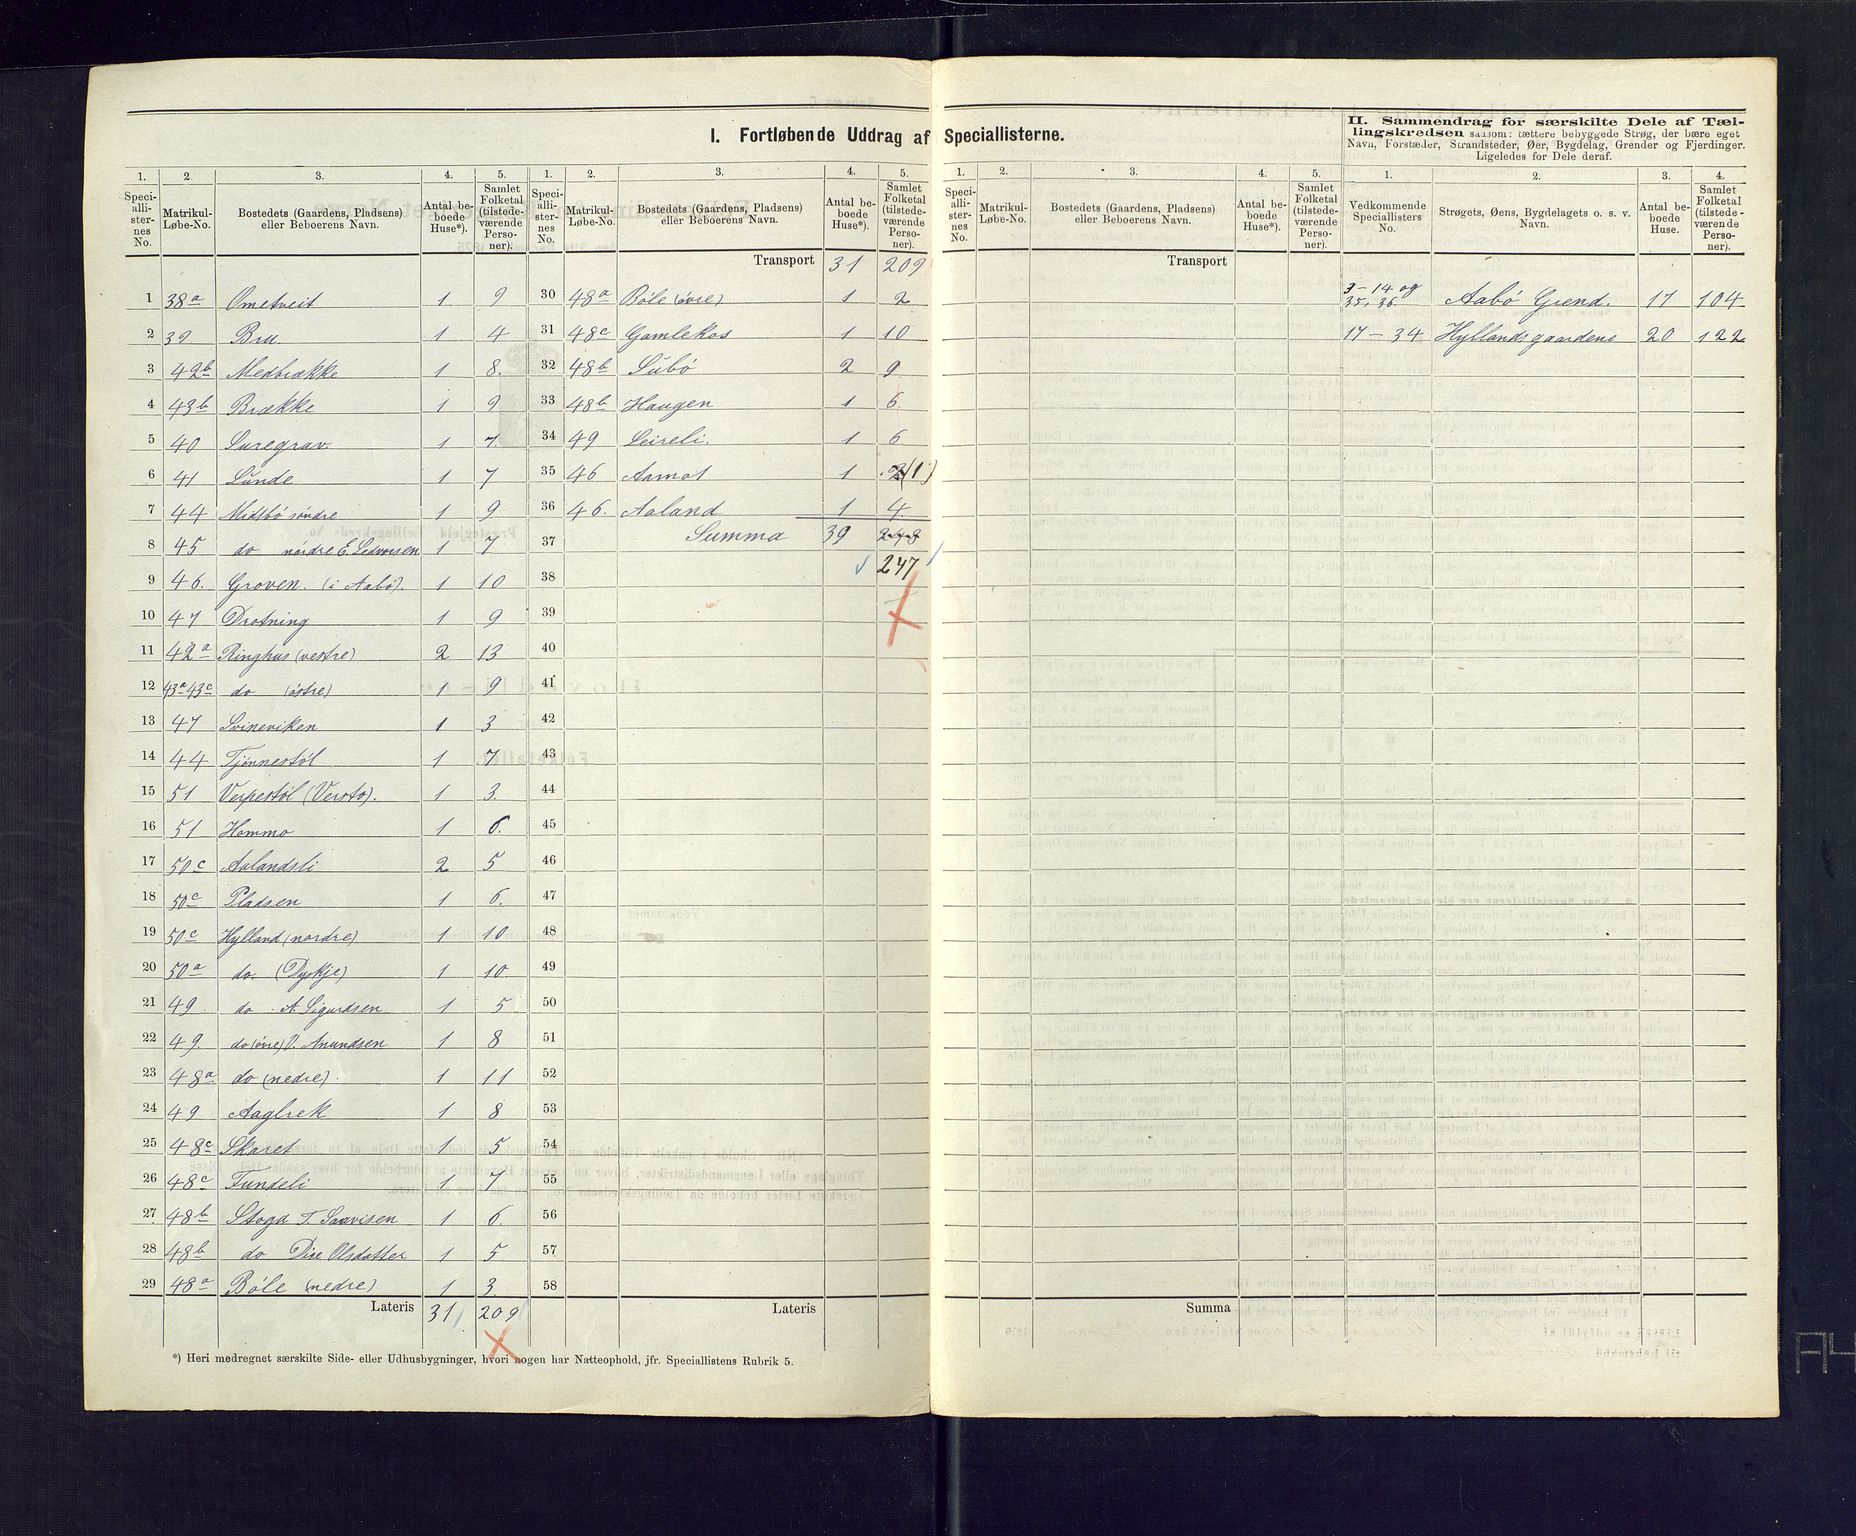 I. Fortløbende Uddrag af Speciallisterne.
II. Sammendrag for særskilte Dele af Tæl-
lingskredsen saasom: tættere bebyggede Strøg, der bære eget
Navn, Forstæder, Strandsteder, Øer, Bygdelag, Grender og Fjerdinger.
Ligeledes for Dele deraf.
1. 2. 3. 4. 5.
Speciallisternes No. Matrikul-Løbe-No. Bostedets (Gaardens, Pladsens) eller Beboerens Navn. Antal beboede Huse*). Samlet Folketal (tilstedeværende Personer).
1 38a Ometveit 1 9
2 39 Bru 1 4
3 42b Medbrække 1 8.
4 43b Brække 1 9
5 40 Suregrav. 1 7.
6 41 Lunde 1 7
7 44 Midsbø søndre 1 9
8 45 do nordre E. Sedvorsen 1 7
9 46. Groven. (i Aabø). 1 10
10 47 Drotning 1 9
11 42a Ringhus (vestre) 2 13
12 43a 43c do (østre) 1 9
13 47 Svineviken 1 3
14 44 Tjønnestøl 1 7
15 51 Verpestøl (Versto). 1 3.
16 51 Hommo 1 6.
17 50c Aalandsli 2 5
18 50c Pladsen 1 6.
19 50c Hylland (nordre) 1 10
20 50a do. (Dyskje) 1 10.
21 49. do A. Sigurdsen 1 5
22 49. do (øvre) V. Anundsen 1 8
23 48a do (nedre). 1 11
24 49 Aaglrek 1 8
25 48c Skaret 1 5
26 48c Tundeli 1 7
27 48b Stoga T. Saavisen 1 6.
28 48b do Dise Olsdatter 1 5
29 48a Bøle (nedre) 1 3
Lateris 31 209
*) Heri medregnet særskilte Side- eller Udhusbygninger, hvori nogen har Natteophold, jfr. Speciallistens Rubrik 5.
1. 2. 3. 4. 5.
Speciallisternes No. Matrikul-Løbe-No. Bostedets (Gaardens, Pladsens) eller Beboerens Navn. Antal beboede Huse*). Samlet Folketal (tilstedeværende Personer).
Transport 31 209
30 48a Bøle (øvre) 1 2
31 48c Gamlekos 1 10
32 48b Subø 2 9
33 48b Haugen 1 6.
34 49 Leireli. 1 6.
35 46 Aamot 1 2 (1)
36 46. Aaland 1 4.
37 Summa 39 248
38 247
39
40
41
42
43
44
45
46
47
48
49
50
51
52
53
54
55
56
57
58
Lateris
1. 2. 3. 4. 5.
Speciallisternes No. Matrikul-Løbe-No. Bostedets (Gaardens, Pladsens) eller Beboerens Navn. Antal beboede Huse*). Samlet Folketal (tilstedeværende Personer).
Transport
Summa
1. 2. 3. 4.
Vedkommende Speciallisters No. Strøgets, Øens, Bygdelagets o. s. v. Navn. Antal beboede Huse. Samlet Folketal (tilstedeværende Personer).
9-14 og
35, 36 Aabø Grend. 17 104
17-34 Hyllandsgaardene 20 122